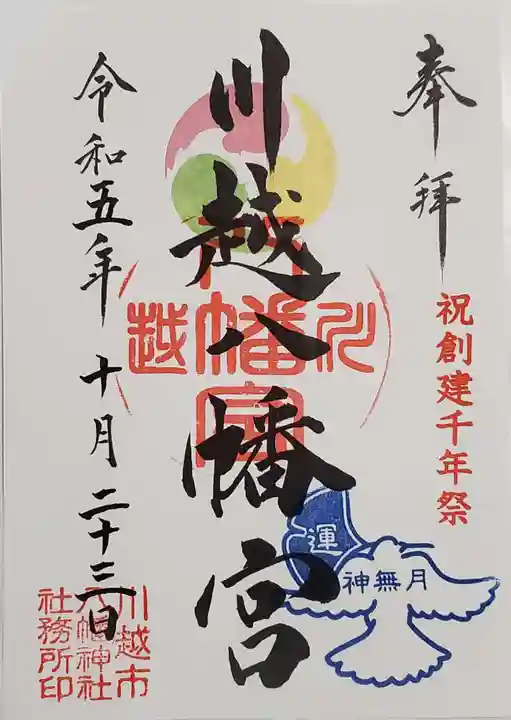 奉拝
祝創建千年祭
川越八幡宮
川越八幡宮
運
神無月
令和五年十月二十三日
川越市
八幡神社
社務所印